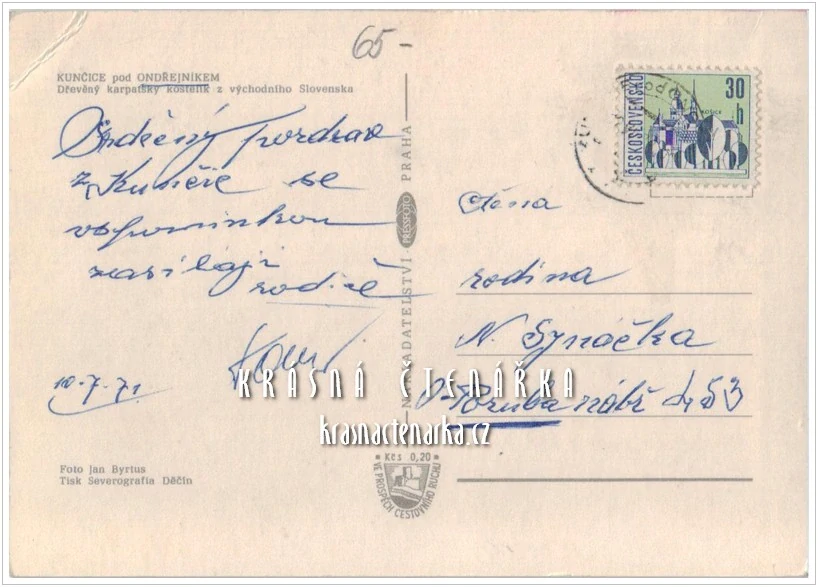 65-
KUNČICE pod ONDŘEJNÍKEM
Dřevěný karpatský kostelík z východního Slovenska
Srdečný pozdrav
z Kunčic se
vzpomínkou
zasílají rodiče
10-7-71
Foto Jan Byrtus
Tisk Severografia Děčín
NAKLADATELSTVÍ PRESSFOTO PRAHA
Kčs 0,20
VE PROSPĚCH CESTOVNÍHO RUCHU
ČESKOSLOVENSKO
30 h
KOŠICE
Ctěná
rodina
N. Synáčka
O-Poruba nábř
KRÁSNÁ ČTENÁŘKA
krasnactenarka.cz